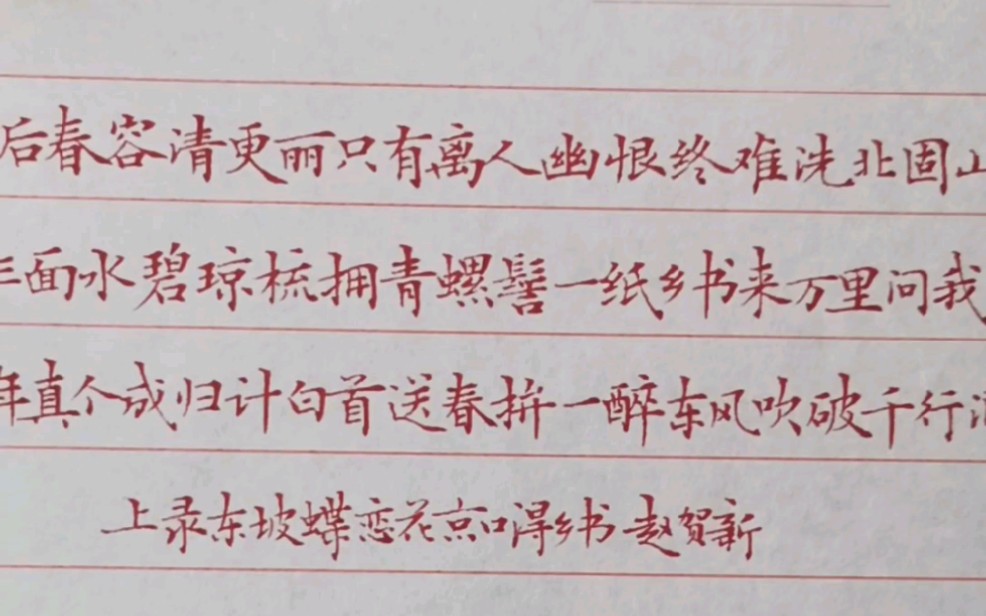 后春容清更丽只有离人幽恨终难洗北固山
三面水碧琼梳拥青螺髻一纸乡书来万里问我
年真个成归计白首送春拚一醉东风吹破千行泪
上录东坡蝶恋花京口得乡书赵贺新